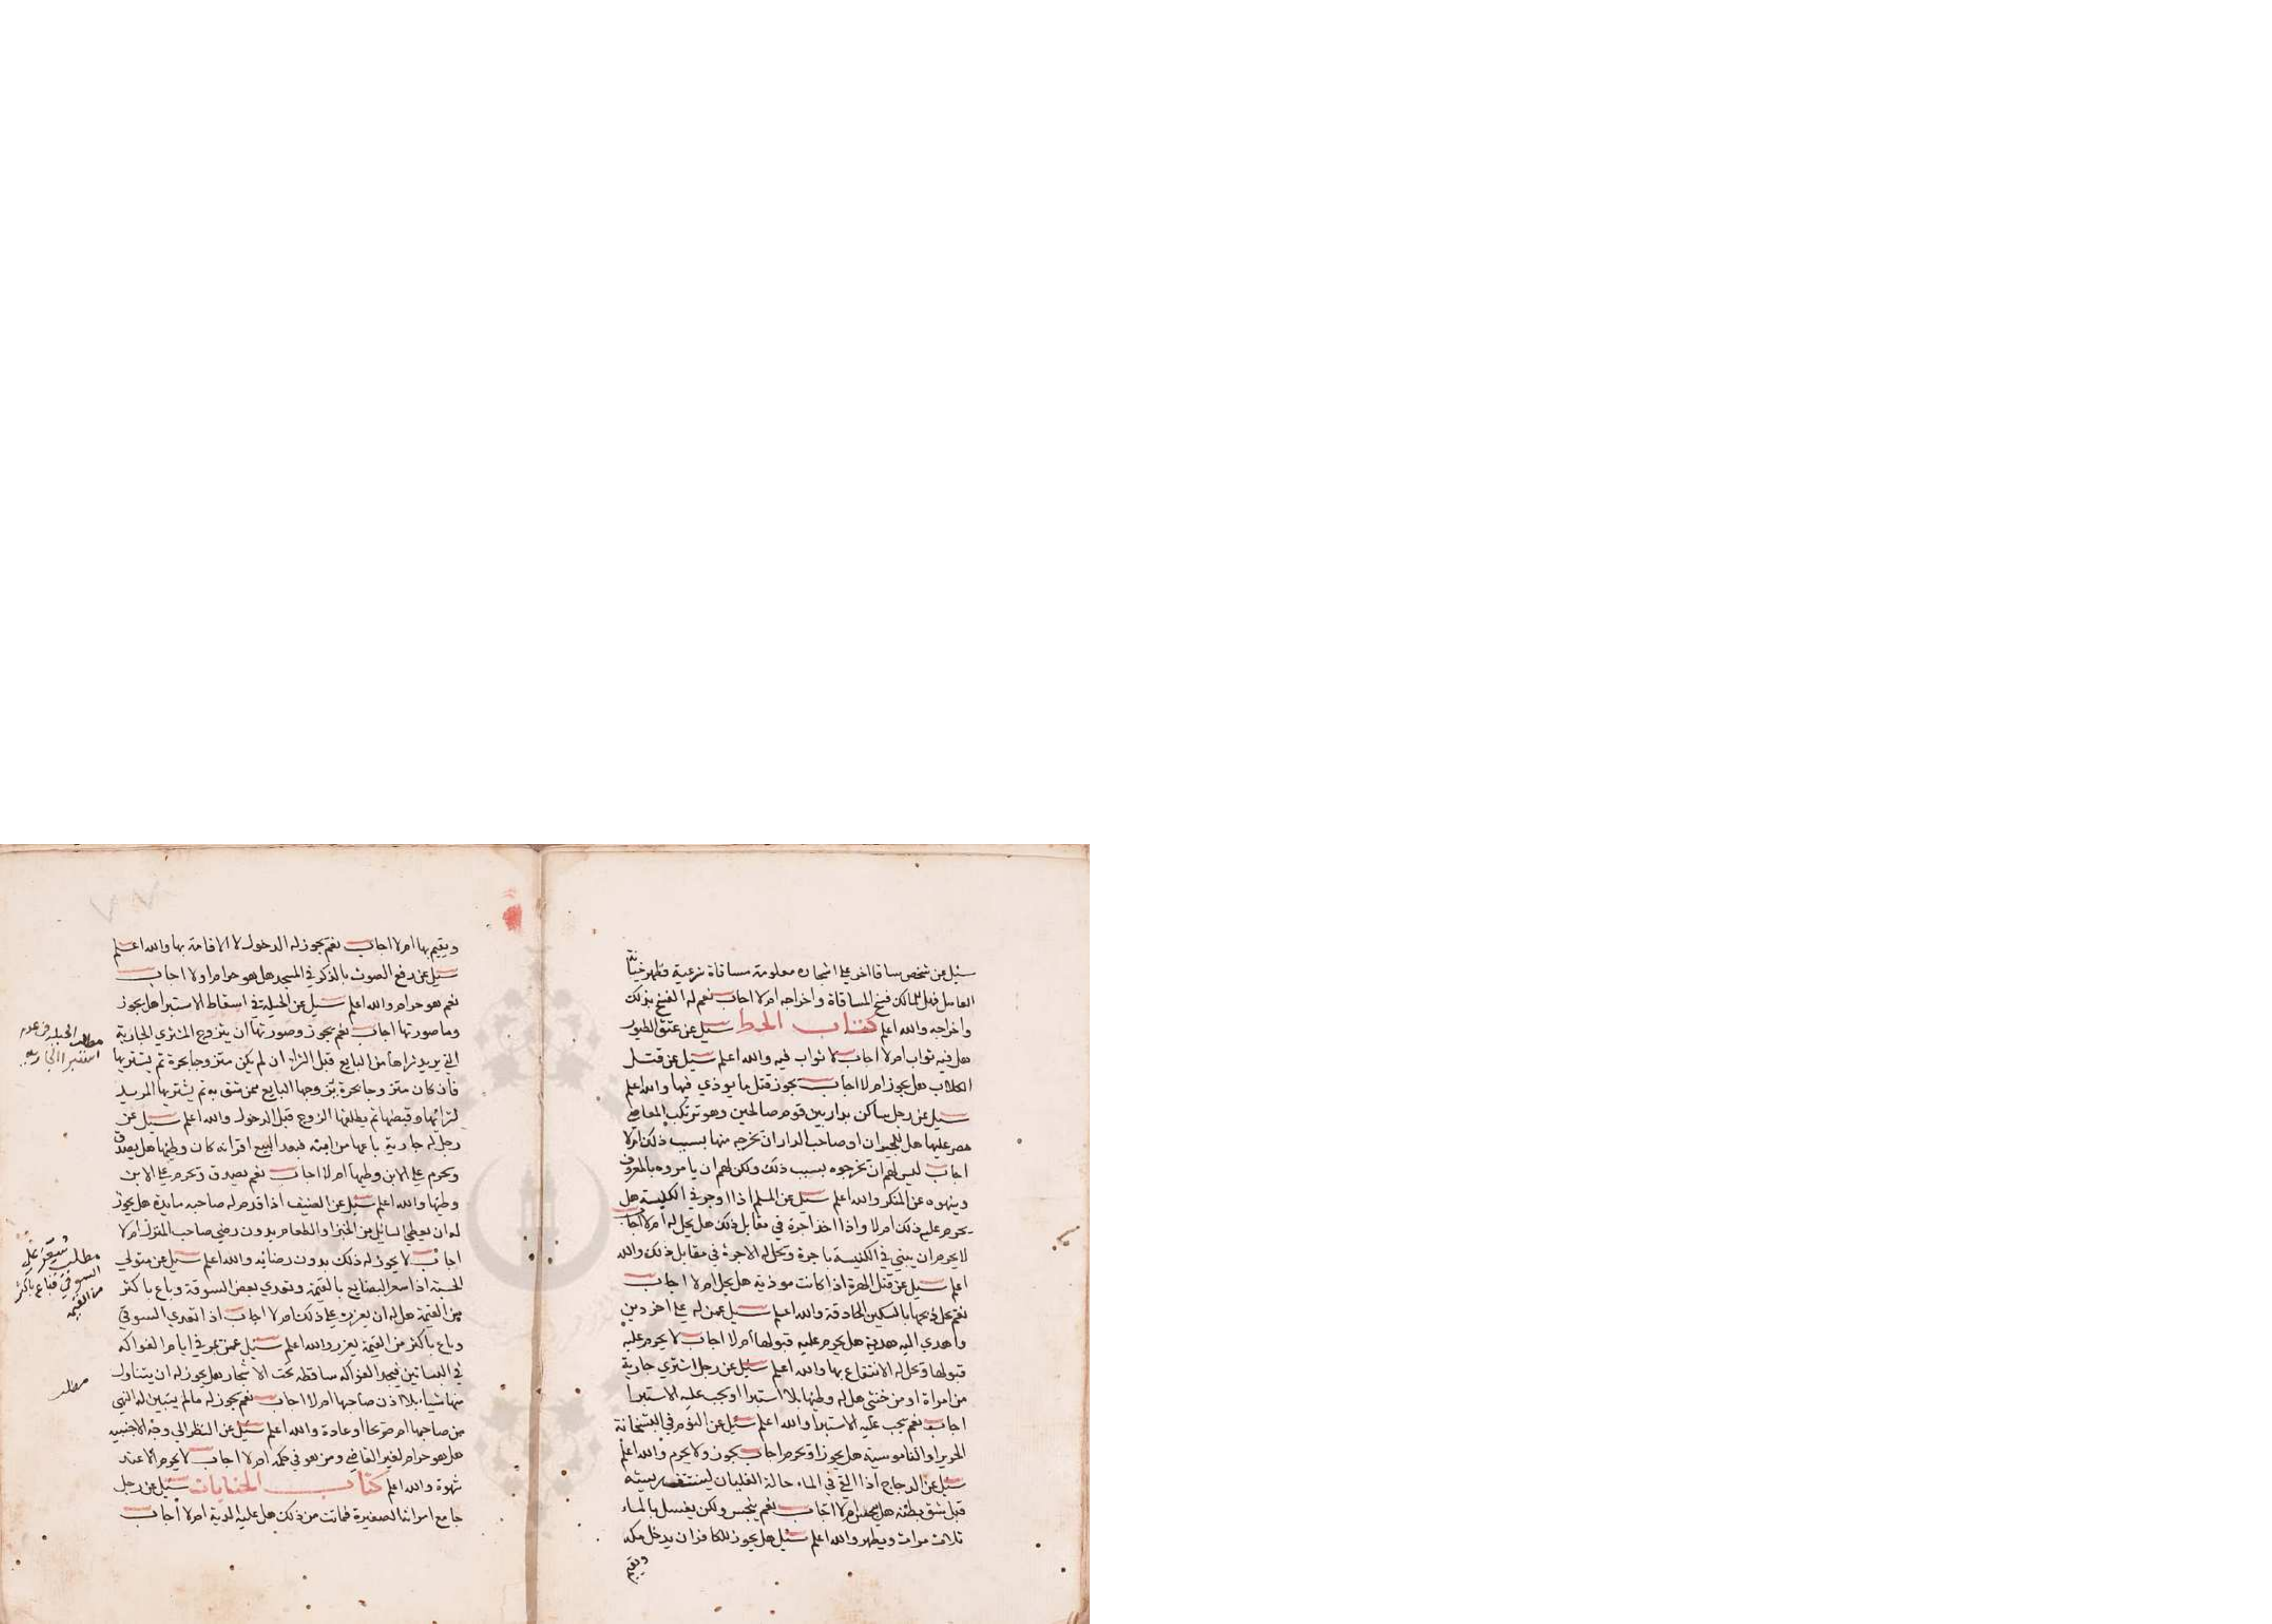 سئل عن شخص ساقا اخر علي اشجاره معلومة مساقاة شرعية فظهر خيانة
العامل فهل للمالك فسخ المساقاة واخراجه ام لا اجاب نعم له الفسخ بذلك
واخراجه والله اعلم كتاب الحظر سئل عن عتق الطيور
هل فيه ثواب ام لا اجاب لا ثواب فيه والله اعلم سئل عن قتل
الكلاب هل يجوز ام لا اجاب يجوز قتل ما يوذي فيها والله اعلم
سئل عن رجل ساكن بدار بين قوم صالحين وهو ترتكب المعاصي
مصر عليها هل للجيران او صاحب الدار ان يخرجه منها بسبب ذلك ام لا
اجاب ليس لهم ان يخرجوه بسبب ذلك ولكن لهم ان يامروه بالمعروف
وينهوه عن المنكر والله اعلم سئل عن المسلم اذا اوجر في الكنيسة هل
يحرم عليه ذلك ام لا واذا اخذ اجرة في مقابل ذلك هل يحل له ام لا اجاب
لا يحرم ان يبني في الكنيسة باجرة ويحل له الاجرة في مقابل ذلك والله
اعلم سئل عن قتل الهرة اذا كانت موذية هل يحل ام لا اجاب
نعم يحل ذبحها بالسكين الحادقة والله اعلم سئل عمن له علي اخر دين
واهدي اليه هدية هل يحرم عليه قبولها ام لا اجاب لا يحرم عليه
قبولها ويحل له الانتفاع بها والله اعلم سئل عن رجل اشتري جارية
من امراة او من خنثي هل له وطئها بلا استبرا او يجب عليه الاستبرا
اجاب نعم يجب عليه الاستبرا والله اعلم سئل عن النوم في البشخانة
الحرير او الناموسية هل يجوز او يحرم اجاب يجوز ولا يحرم والله اعلم
سئل عن الدجاج اذا القي في الماء حالة الغليان لينتتف ريشه
قبل شق بطنه هل ينجس ام لا اجاب نعم ينجس ولكن يغسل بالماء
ثلاث مرات ويطهر والله اعلم سئل هل يجوز للكافر ان يدخل مكه
ويقيم
٧٧
ويقيم بها ام لا اجاب نعم يجوز له الدخول لا الاقامة بها والله اعلم
سئل عن رفع الصوت بالذكر في المسجد هل هو حرام او لا اجاب
نعم هو حرام والله اعلم سئل عن الحيلة في اسقاط الاستبرا هل يجوز
وما صورتها اجاب نعم يجوز وصورتها ان يتزوج المشتري الجارية
التي يريد شراها من البايع قبل الشراء ان لم يكن متزوجا بحرة ثم يشتريها
فان كان متزوجا بحرة يزوجها البايع ممن يثق به ثم يشتريها المريد
لشرائها وقبضها ثم يطلقها الزوج قبل الدخول والله اعلم سئل عن
رجل له جارية باعها من ابنه فبعد البيع اقر انه كان وطئها هل يصدق
ويحرم علي الابن وطيها ام لا اجاب نعم يصدق ويحرم علي الابن
وطئها والله اعلم سئل عن الضيف اذا قدم له صاحبه مايدة هل يجوز
له ان يعطي السائل من الخبز والطعام بدون رضي صاحب المنزل ام لا
اجاب لا يجوز له ذلك بدون رضائه والله اعلم سئل عن متولي
الحسبة اذا سعر البضايع بالقيمة وتعدي بعض السوقة وباع باكثر
من القيمة هل له ان يعزره علي ذلك ام لا اجاب اذا تعدي السوقي
وباع باكثر من القيمة يعزر والله اعلم سئل عمن يمر في ايام الفواكه
في البساتين فيجد الفواكه ساقطه تحت الاشجار هل يجوز له ان يتناول
منها شياء بلا اذن صاحبها ام لا اجاب نعم يجوز له ما لم يتبين له النهي
من صاحبها ام صريحا او عادة والله اعلم سئل عن النظر الي وجه الاجنبيه
هل هو حرام لغير القاضي ومن هو في حكمه ام لا اجاب لا يحرم الا عند
شهوة والله اعلم كتاب الجنايات سئل عن رجل
جامع امراته الصغيرة فماتت من ذلك هل عليه الدية ام لا اجاب
مطلب الحيله في عدم
استبرا الجاريه
مطلب سُعِّر علي
السوقي فباع باكثر
من القيمه
مطلب